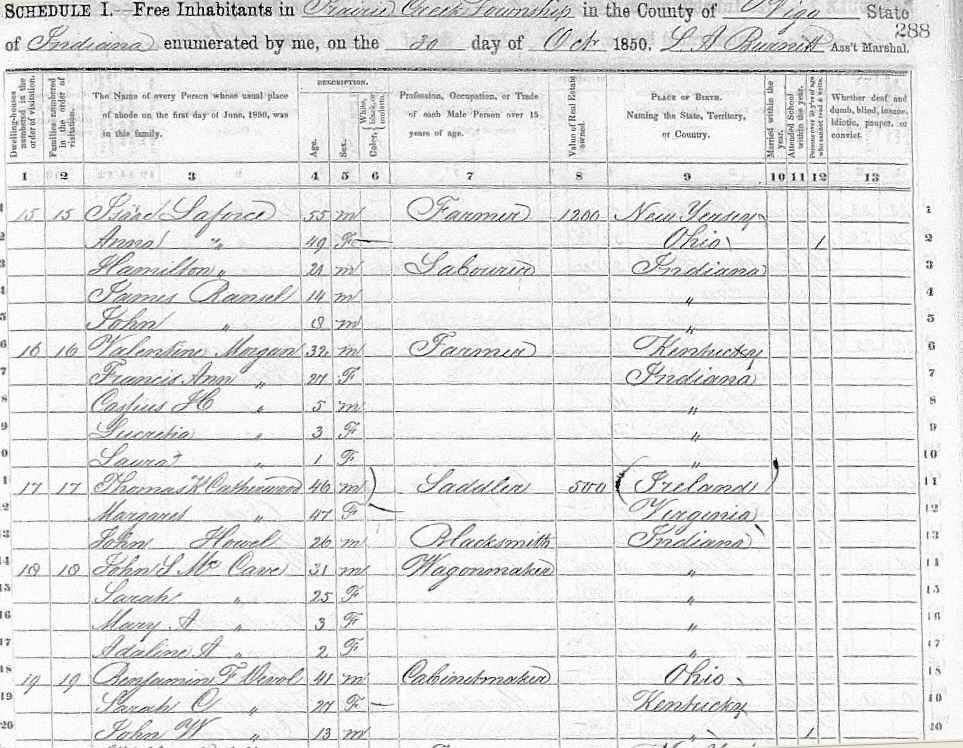 SCHEDULE I.—Free Inhabitants in Prairie Creek Township in the County of Vigo State
288
of Indiana enumerated by me, on the 30 day of Oct 1850. L A Burnett Ass't Marshal.
Dwelling-houses numbered in the order of visitation.
Families numbered in the order of visitation.
The Name of every Person whose usual place of abode on the first day of June, 1850, was in this family.
DESCRIPTION.
Age.
Sex.
Color, { White, black, or mulatto.
Profession, Occupation, or Trade of each Male Person over 15 years of age.
Value of Real Estate owned.
PLACE OF BIRTH. Naming the State, Territory, or Country.
Married within the year.
Attended School within the year.
Persons over 20 y'rs of age who cannot read & write.
Whether deaf and dumb, blind, insane, idiotic, pauper, or convict.
1 2 3 4 5 6 7 8 9 10 11 12 13
1 15 15 Laforce 55 m Farmer 1200 New Yersey 1
2 Anna " 49 F Ohio 1 2
3 Hamilton " 21 m Labourer Indiana 3
4 James Ransel 14 m " 4
5 John " 8 m " 5
6 16 16 Valentine Morgan 32 m Farmer Kentucky 6
7 Francis Ann " 27 F Indiana 7
8 Casius H " 5 m " 8
9 Lucretia " 3 F " 9
10 Laura " 1 F " 10
11 17 17 Thomas K Catherwood 46 m Saddler 500 (Ireland) 11
12 Margaret " 47 F Virginia 12
13 John Howel 26 m Blacksmith Indiana 13
14 18 18 John S Mc Cave 31 m Wagonmaker " 14
15 Sarah " 25 F " 15
16 Mary A " 3 F " 16
17 Adaline A " 2 F " 17
18 19 19 Benjamin F Devol 41 m Cabinetmaker Ohio 18
19 Sarah C " 27 F Kentucky 19
20 John W " 13 m " 1 20